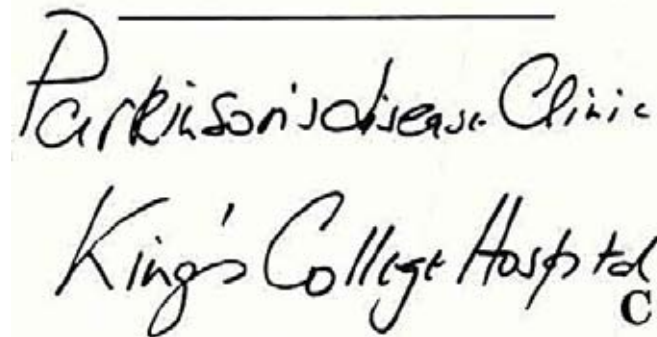 Parkinson's disease Clinic
King's College Hospital
C